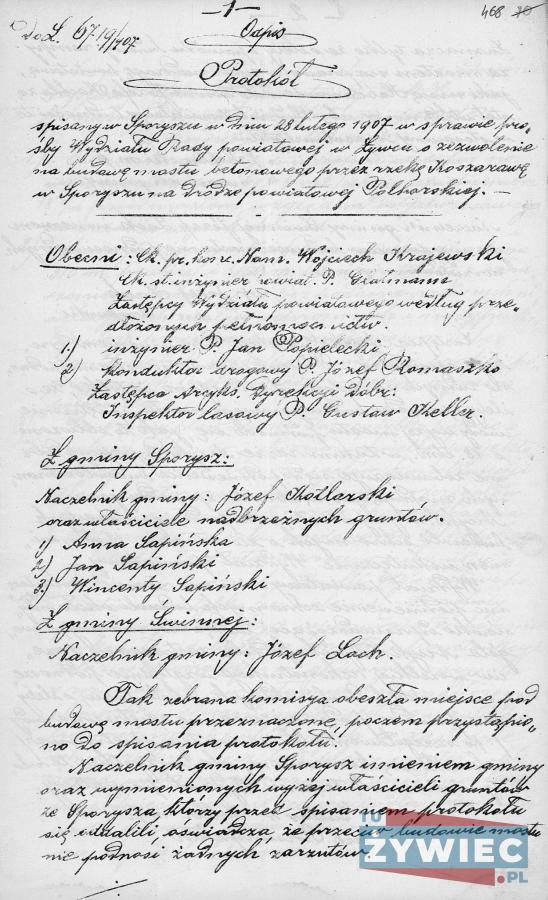 -1-
468 70
do L. 6719/907
Odpis
Protokół
spisany w Sporyszu w dniu 28 lutego 1907 w sprawie proś-
śby Wydziału Rady powiatowej w Żywcu o zezwolenie
na budowę mostu betonowego przez rzekę Koszarawę
w Sporyszu na drodze powiatowej Polhorskiej. —
Obecni: Ck. pr. kow. Nam. Wojciech Krajewski
Ck. st. inżynier powiat. P.
Zastępcy Wydziału powiatowego według prze-
dłożonych pełnomocnictw.
1.) inżynier P. Jan Popielecki
2) Konduktor drogowy P. Józef Romaszko
Zastępca Arcyks. Dyrekcyi Dóbr:
Inspektor lasowy P. Gustaw Keller.
Z gminy Sporysz:
Naczelnik gminy: Józef Kotlarski
oraz właściciele nadbrzeżnych gruntów.
1) Anna Sapińska
2) Jan Sapiński
3.) Wincenty Sapiński
Z gminy Świnnej:
Naczelnik gminy: Józef Loch.
Tak zebrana komisya obeszła miejsce pod
budowę mostu przeznaczone, poczem przystąpio-
no do spisania protokołu.
Naczelnik gminy Sporysz imieniem gminy
oraz wymienionych wyżej właścicieli gruntów
ze Sporysza, którzy przed spisaniem protokołu
się oddalili, oświadcza, że przeciw budowie mostu
nie podnosi żadnych zarzutów.
TU
ŻYWIEC
.PL